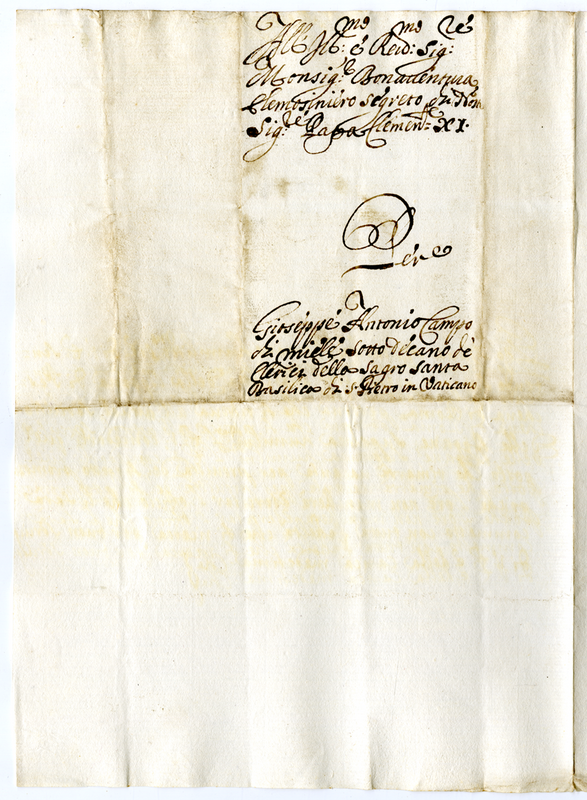 All' Ill:mo e Reud:mo Sig:re
Monsig:re Bonauentura
Elemosiniero segreto di N̄ro
Sig:re Papa Clemente XI.
Per
Giuseppe Antonio Campo
di miele sotto decano de
Clerici della sagro santa
Basilica di s. Pietro in Vaticano